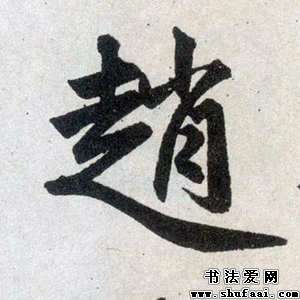 趙
书法爱网
www.shufaai.com